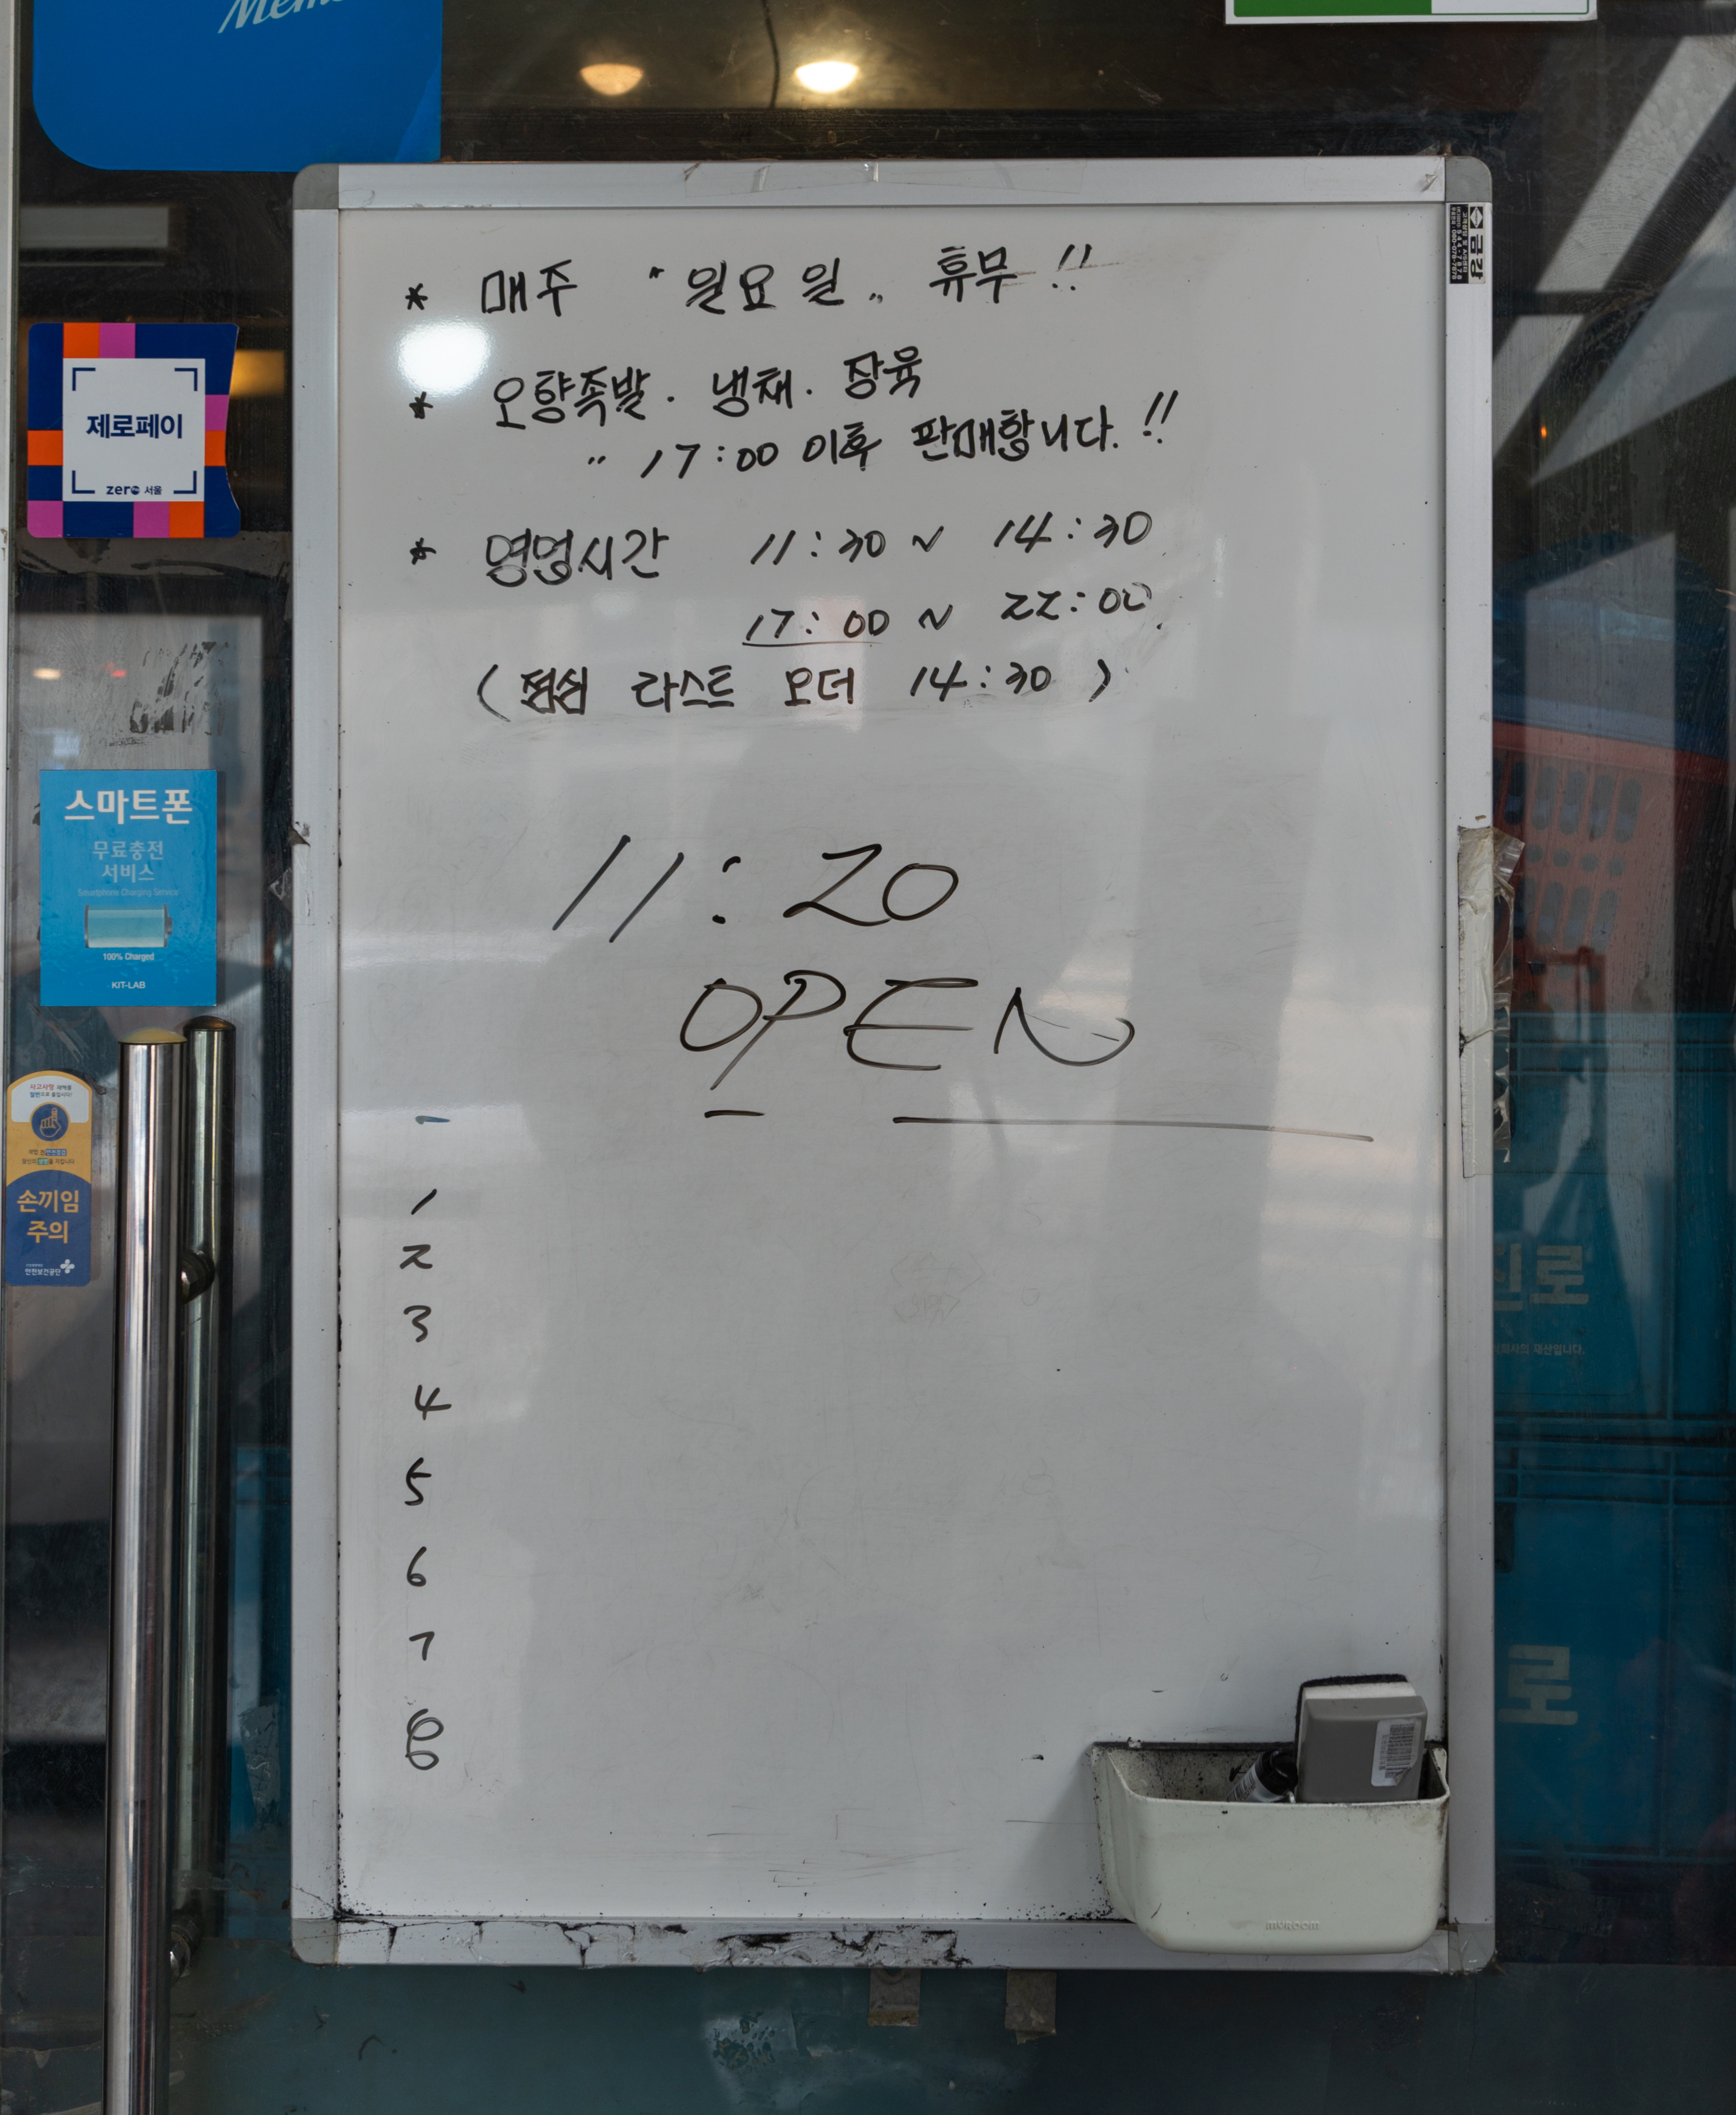 * 매주 " 일요일 " 휴무 !!
* 오향족발 . 냉채 . 장육
" 17:00 이후 판매합니다. !!
* 영업시간 11:30 ~ 14:30
17:00 ~ 22:00
( 점심 라스트 오더 14:30 )
11:20
OPEN
1
2
3
4
5
6
7
8
제로페이
zero 서울
스마트폰
무료충전
서비스
Smartphone Charging Service
100% Charged
KIT-LAB
손끼임
주의
안전보건공단
금강
진로
로
MUROOM